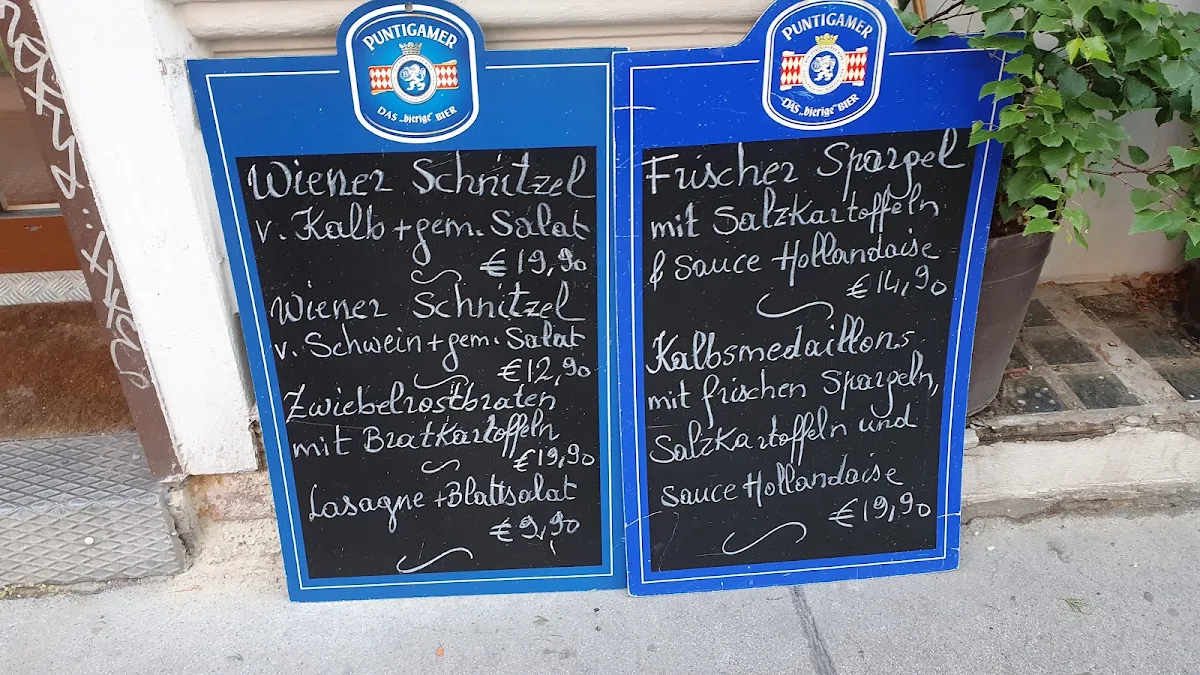 PUNTIGAMER
DAS „bierige“ BIER
Wiener Schnitzel
v. Kalb + gem. Salat
€ 19,90
Wiener Schnitzel
v. Schwein + gem. Salat
€ 12,90
Zwiebelrostbraten
mit Bratkartoffeln
€ 19,90
Lasagne + Blattsalat
€ 9,90
PUNTIGAMER
DAS „bierige“ BIER
Frischer Spargel
mit Salzkartoffeln
& Sauce Hollandaise
€ 14,90
Kalbsmedaillons
mit frischen Spargeln,
Salzkartoffeln und
Sauce Hollandaise
€ 19,90